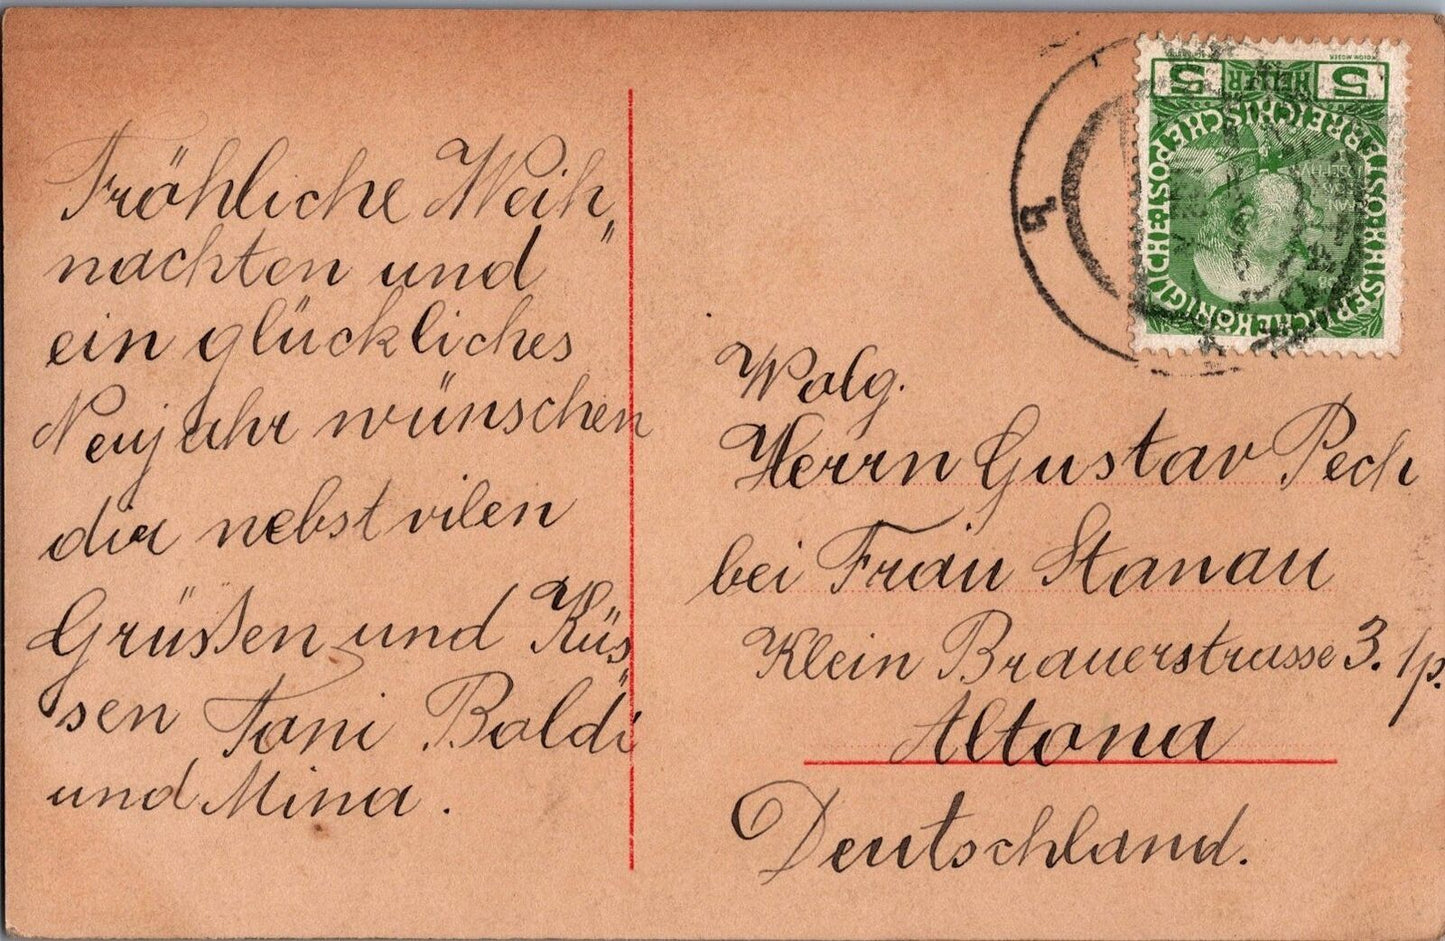 Fröhliche Weih„
nachten und
ein glückliches
Neujahr wünschen
dir nebst vilen
Grüßen und Küs„
sen Toni Boldi
und Mina.
5 HELLER 5
KAISERLICHE KÖNIGLICHE POST
ÖSTERREICHISCHE
b
Wolg.
Herrn Gustav Pech
bei Frau Stanau
Klein Brauerstrasse 3. 1/p.
Altona
Deutschland.